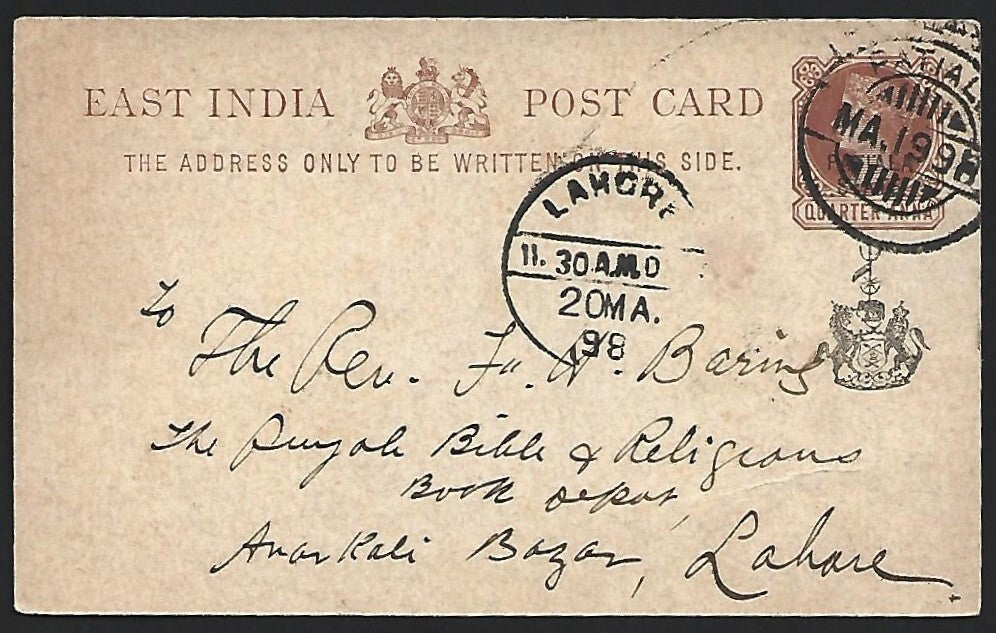 EAST INDIA POST CARD
THE ADDRESS ONLY TO BE WRITTEN ON THIS SIDE.
QUARTER ANNA
MA. 19 98
LAHORE
11. 30 A.M. D
20 MA.
98
To
The Rev. Fr. H. Baring
The Punjab Bible & Religious
Book Depot,
Anarkali Bazar, Lahore